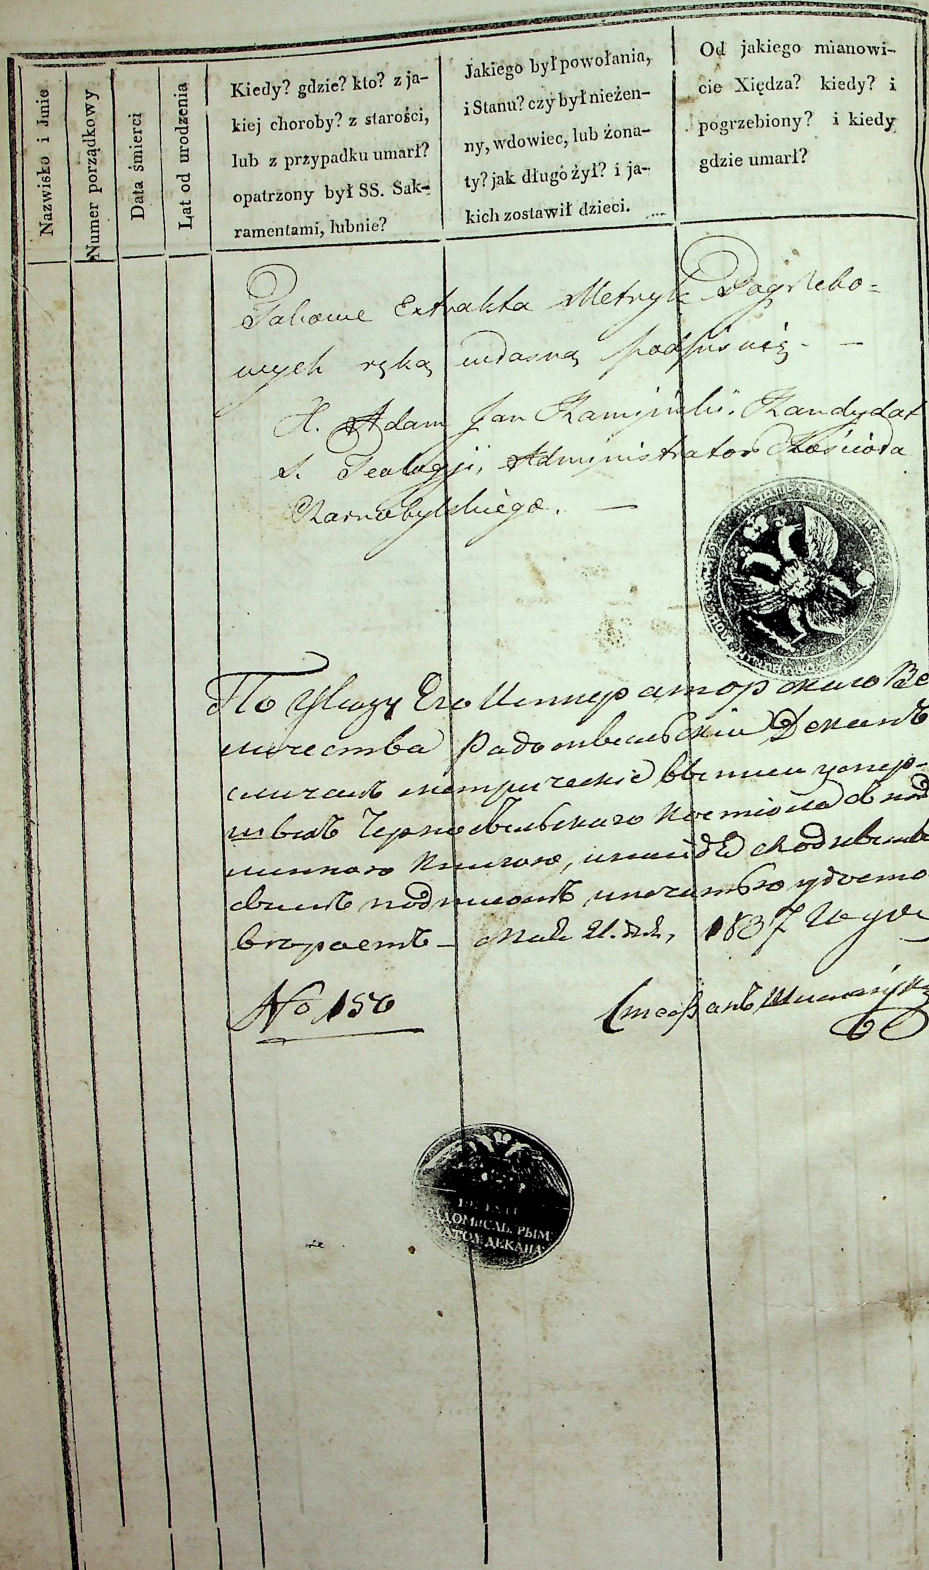 Nazwisko i Jmie
Numer porządkowy
Data śmierci
Lat od urodzenia
Kiedy? gdzie? kto? z ja-
kiej choroby? z starości,
lub z przypadku umarł?
opatrzony był SS. Sak-
ramentami, lubnie?
Jakiego był powołania,
i Stanu? czy był nieżen-
ny, wdowiec, lub żona-
ty? jak długo żył? i ja-
kich zostawił dzieci.
Od jakiego mianowi-
cie Xiędza? kiedy? i
pogrzebiony? i kiedy
gdzie umarł?
Takowe Extrakta Metryk Pogrzebo-
wych ręką własną podpisuię. —
X. Adam Jan Kamiński. Kandydat
S. Teologji, Administrator Kościoła
Czarnobylskiego. —
По Указу Его Императорскаго Ве
личества Радомысльскій Деканъ
сличалъ метрическіе выписи умер-
шихъ Чернобыльскаго костіола съ под
линною книгою,
своимъ подписомъ, и печатью удосто
вѣряетъ — Мая 21. дня, 1837 года
No 150
Стефанъ
РАДОМИСЛЬ. РЫМ
КАТОЛ. ДЕКАНА